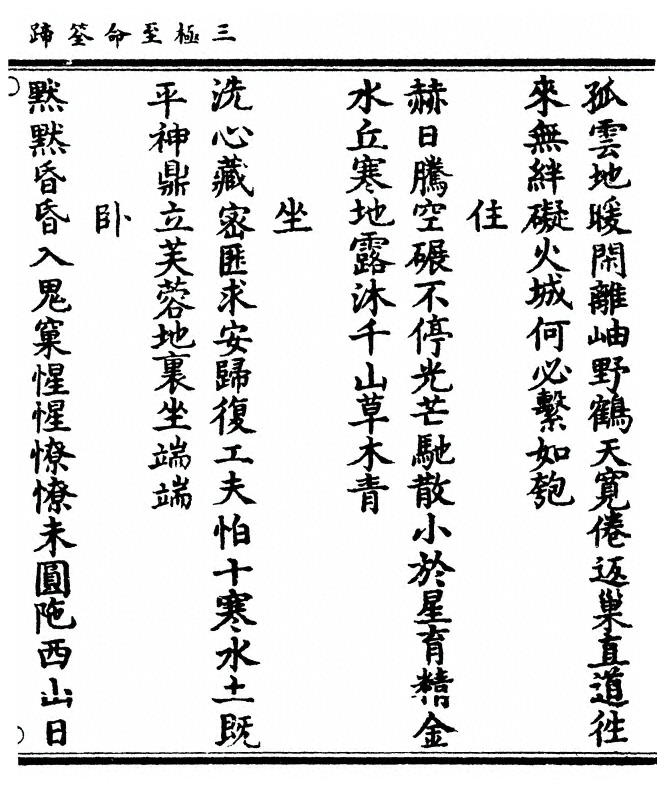 三極至命筌蹄
孤雲地暖閑離岫野鶴天寛倦返巢直道徃
來無絆礙火城何必繫如匏
住
赫日騰空碾不停光芒馳散小於星育精金
水丘寒地露沐千山草木青
坐
洗心藏密匪求安歸復工夫怕十寒水土既
平神鼎立芙蓉地裏坐端端
卧
默默昏昏入鬼窠惺惺憭憭未圓陁西山日